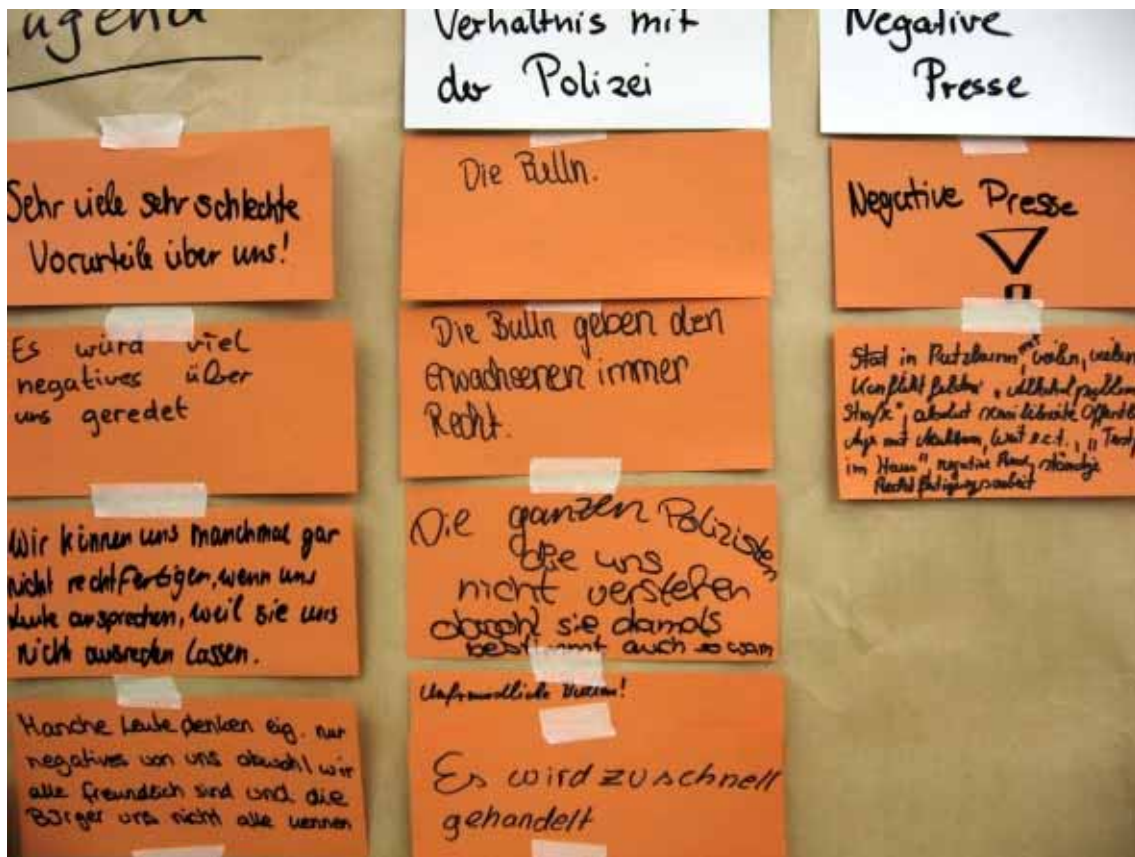 Jugend
Sehr viele sehr schlechte
Vorurteile über uns!
Es würd viel
negatives über
uns geredet
Wir können uns manchmal gar
nicht rechtfertigen, wenn uns
Leute ansprechen, weil sie uns
nicht ausreden lassen.
Manche Leute denken eig. nur
negatives von uns obwohl wir
alle freundlich sind und die
Bürger uns nicht alle kennen
Verhältnis mit
der Polizei
Die Bulln.
Die Bulln geben den
erwachsenen immer
Recht.
Die ganzen Polizisten
die uns
nicht verstehen
obwohl sie damals
bestimmt auch so warn
Unfreundliche
Es wird zu schnell
gehandelt
Negative
Presse
Negative Presse
in
Konflikt
absolut
im Haus", negative ständige
Rechtfertigungsarbeit